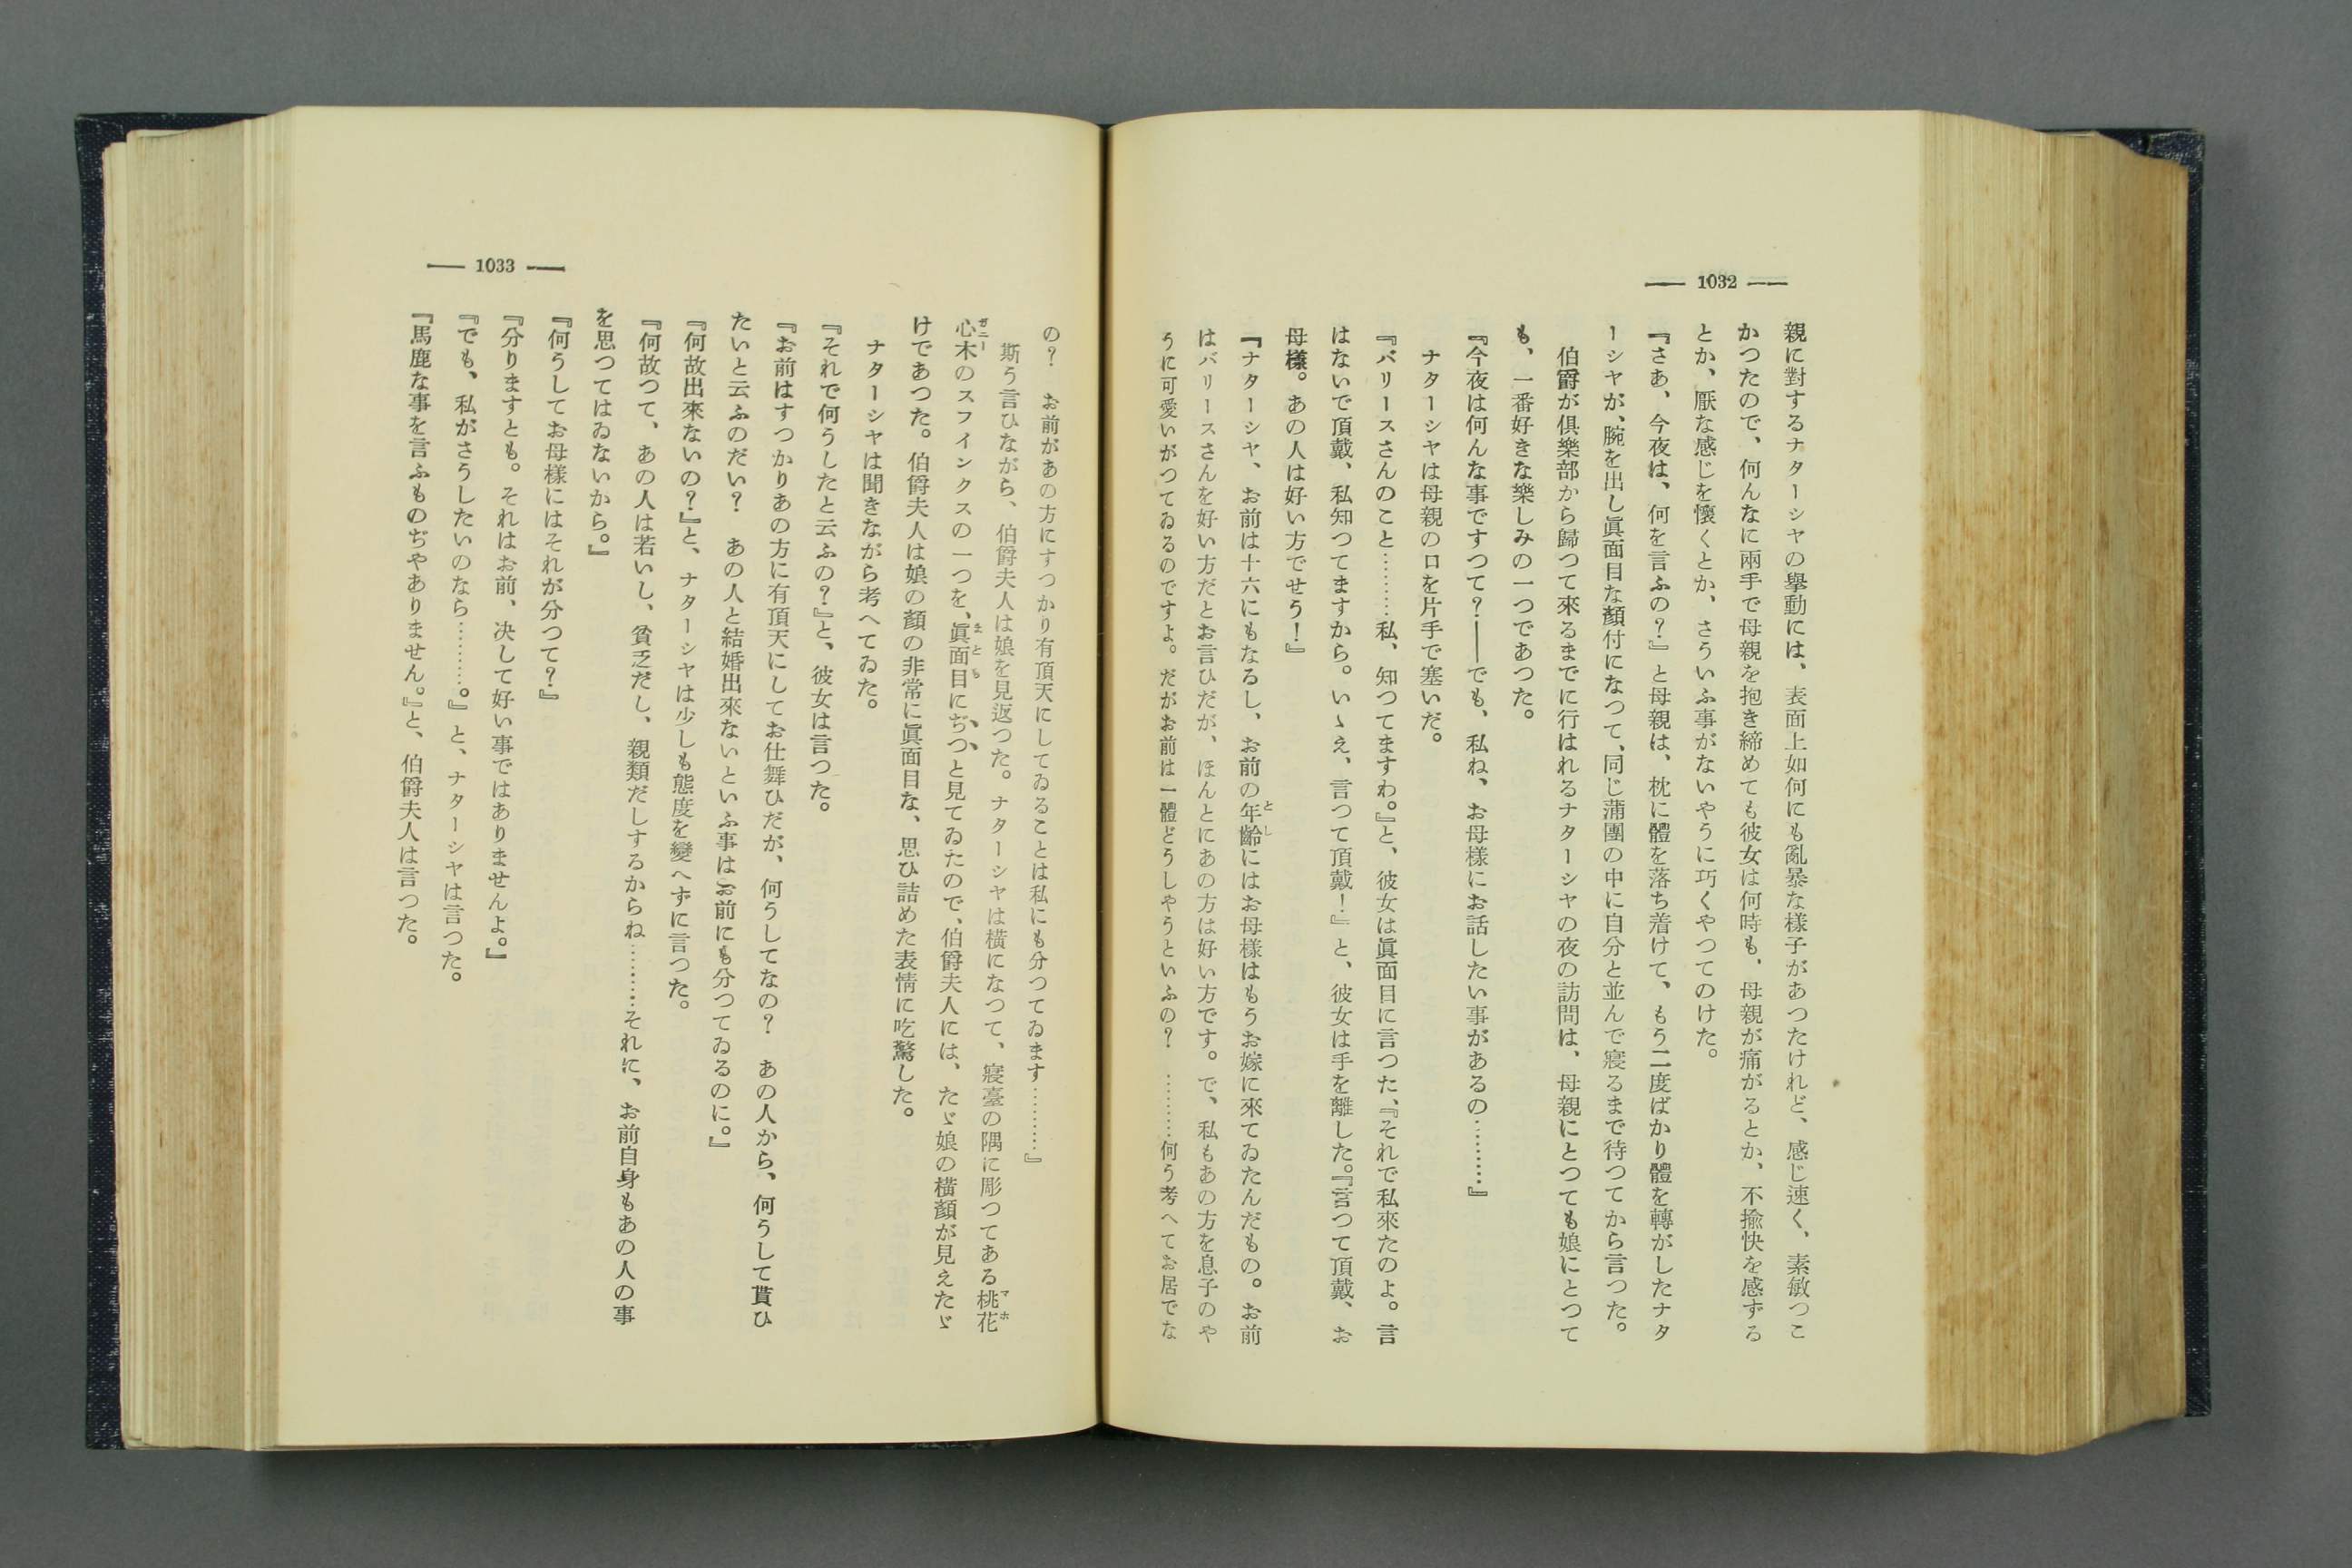 — 1032 —
親に對するナターシヤの擧動には、表面上如何にも亂暴な樣子があつたけれど、感じ速く、素敏つこ
かつたので、何んなに兩手で母親を抱き締めても彼女は何時も、母親が痛がるとか、不揄快を感ずる
とか、厭な感じを懷くとか、さういふ事がないやうに巧くやつてのけた。
『さあ、今夜は、何を言ふの？』と母親は、枕に體を落ち着けて、もう二度ばかり體を轉がしたナタ
ーシヤが、腕を出し眞面目な顏付になつて、同じ蒲團の中に自分と並んで寢るまで待つてから言つた。
伯爵が倶樂部から歸つて來るまでに行はれるナターシヤの夜の訪問は、母親にとつても娘にとつて
も、一番好きな樂しみの一つであつた。
『今夜は何んな事ですつて？――でも、私ね、お母樣にお話したい事があるの………』
ナターシヤは母親の口を片手で塞いだ。
『バリースさんのこと………私、知つてますわ。』と、彼女は眞面目に言つた、『それで私來たのよ。言
はないで頂戴、私知つてますから。いゝえ、言つて頂戴！』と、彼女は手を離した。『言つて頂戴、お
母樣。あの人は好い方でせう！』
『ナターシヤ、お前は十六にもなるし、お前の年齡にはお母樣はもうお嫁に來てゐたんだもの。お前
はバリースさんを好い方だとお言ひだが、ほんとにあの方は好い方です。で、私もあの方を息子のや
うに可愛いがつてゐるのですよ。だがお前は一體どうしやうといふの？　………何う考へてお居でな
— 1033 —
の？　お前があの方にすつかり有頂天にしてゐることは私にも分つてゐます………』
斯う言ひながら、伯爵夫人は娘を見返つた。ナターシヤは橫になつて、寢臺の隅に彫つてある桃花
心木のスフインクスの一つを、眞面目にぢつと見てゐたので、伯爵夫人には、たゞ娘の橫顏が見えたゞ
けであつた。伯爵夫人は娘の顏の非常に眞面目な、思ひ詰めた表情に吃驚した。
ナターシヤは聞きながら考へてゐた。
『それで何うしたと云ふの？』と、彼女は言つた。
『お前はすつかりあの方に有頂天にしてお仕舞ひだが、何うしてなの？　あの人から、何うして貰ひ
たいと云ふのだい？　あの人と結婚出來ないといふ事はお前にも分つてゐるのに。』
『何故出來ないの？』と、ナターシヤは少しも態度を變へずに言つた。
『何故つて、あの人は若いし、貧乏だし、親類だしするからね………それに、お前自身もあの人の事
を思つてはゐないから。』
『何うしてお母樣にはそれが分つて？』
『分りますとも。それはお前、决して好い事ではありませんよ。』
『でも、私がさうしたいのなら………。』と、ナターシヤは言つた。
『馬鹿な事を言ふものぢやありません。』と、伯爵夫人は言つた。